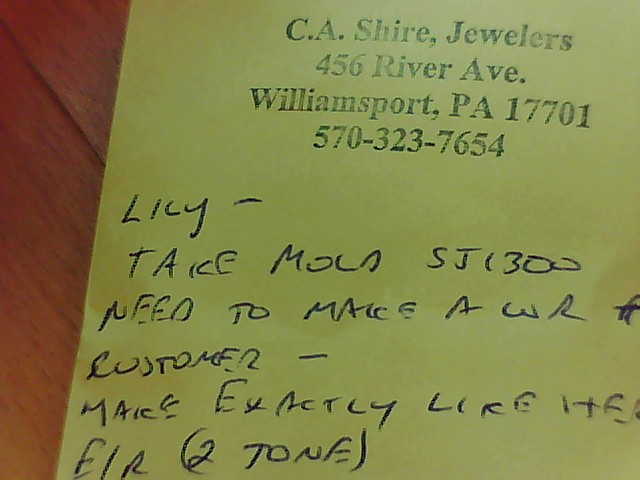 C.A. Shire, Jewelers
456 River Ave.
Williamsport, PA 17701
570-323-7654
LILY -
TAKE MOLD SJ1300
NEED TO MAKE A WR
CUSTOMER -
MAKE EXACTLY LIKE HER
E/R (2 TONE)